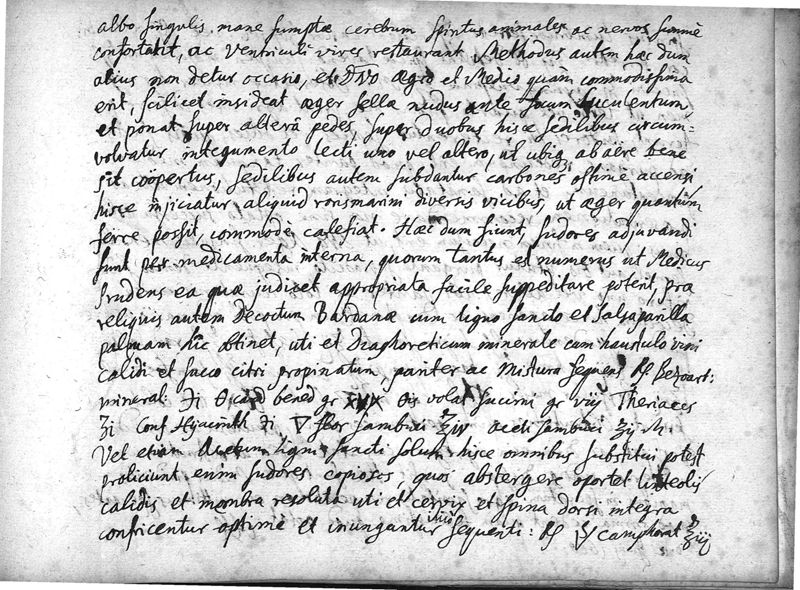 albo singulis mane sumptæ cerebrum spiritus animales ac nervos summè
confortabit, ac Ventriculi vires restaurant Methodus autem hæc dum
alius non detur occasio, et Dno ægro et Medico quam commodissima
erit, scilicet insideat æger sellæ nudus ante focum luculentum,
et ponat super alterā pedes, super duobus hisce sedilibus circum=
volvatur integumento lecti uno vel altero, ut ubiq ab aere bene
sit coopertus, sedilibus autem subdantur carbones optime accensi
hisce injiciatur aliquid rorismarini diversis vicibus, ut æger quantūm
ferre possit, commodè calefiat. Hæc dum fiunt, sudores adjuvandi
sunt per medicamenta interna, quorum tantus est numerus ut Medicus
prudens ea quæ judicet appropriata facile suppeditare poterit, præ
reliquis autem Decoctum Bardanæ cum ligno sancto et salsaparilla
palmam hîc obtinet, uti et Diaphoreticum minerale cum haustulo vini
calidi et succo citri propinatum, pariter ac Mistura sequens ℞ Bezoart:
mineral: ℈i card bened gr volat succini gr viij Theriaces
ʒi Conf Hyacinth ℈i flor sambuci ℥iv aceti sambuci ʒij M.
Vel etiam ligni sancti solum hisce omnibus substitui potest
proliciunt enim sudores copiosos, quos abstergere oportet linteolis
calidis et membra resoluta uti et cervix et spina dorsi integra
confricentur optime et inungantur sequenti: ℞ camphorat ℥iij